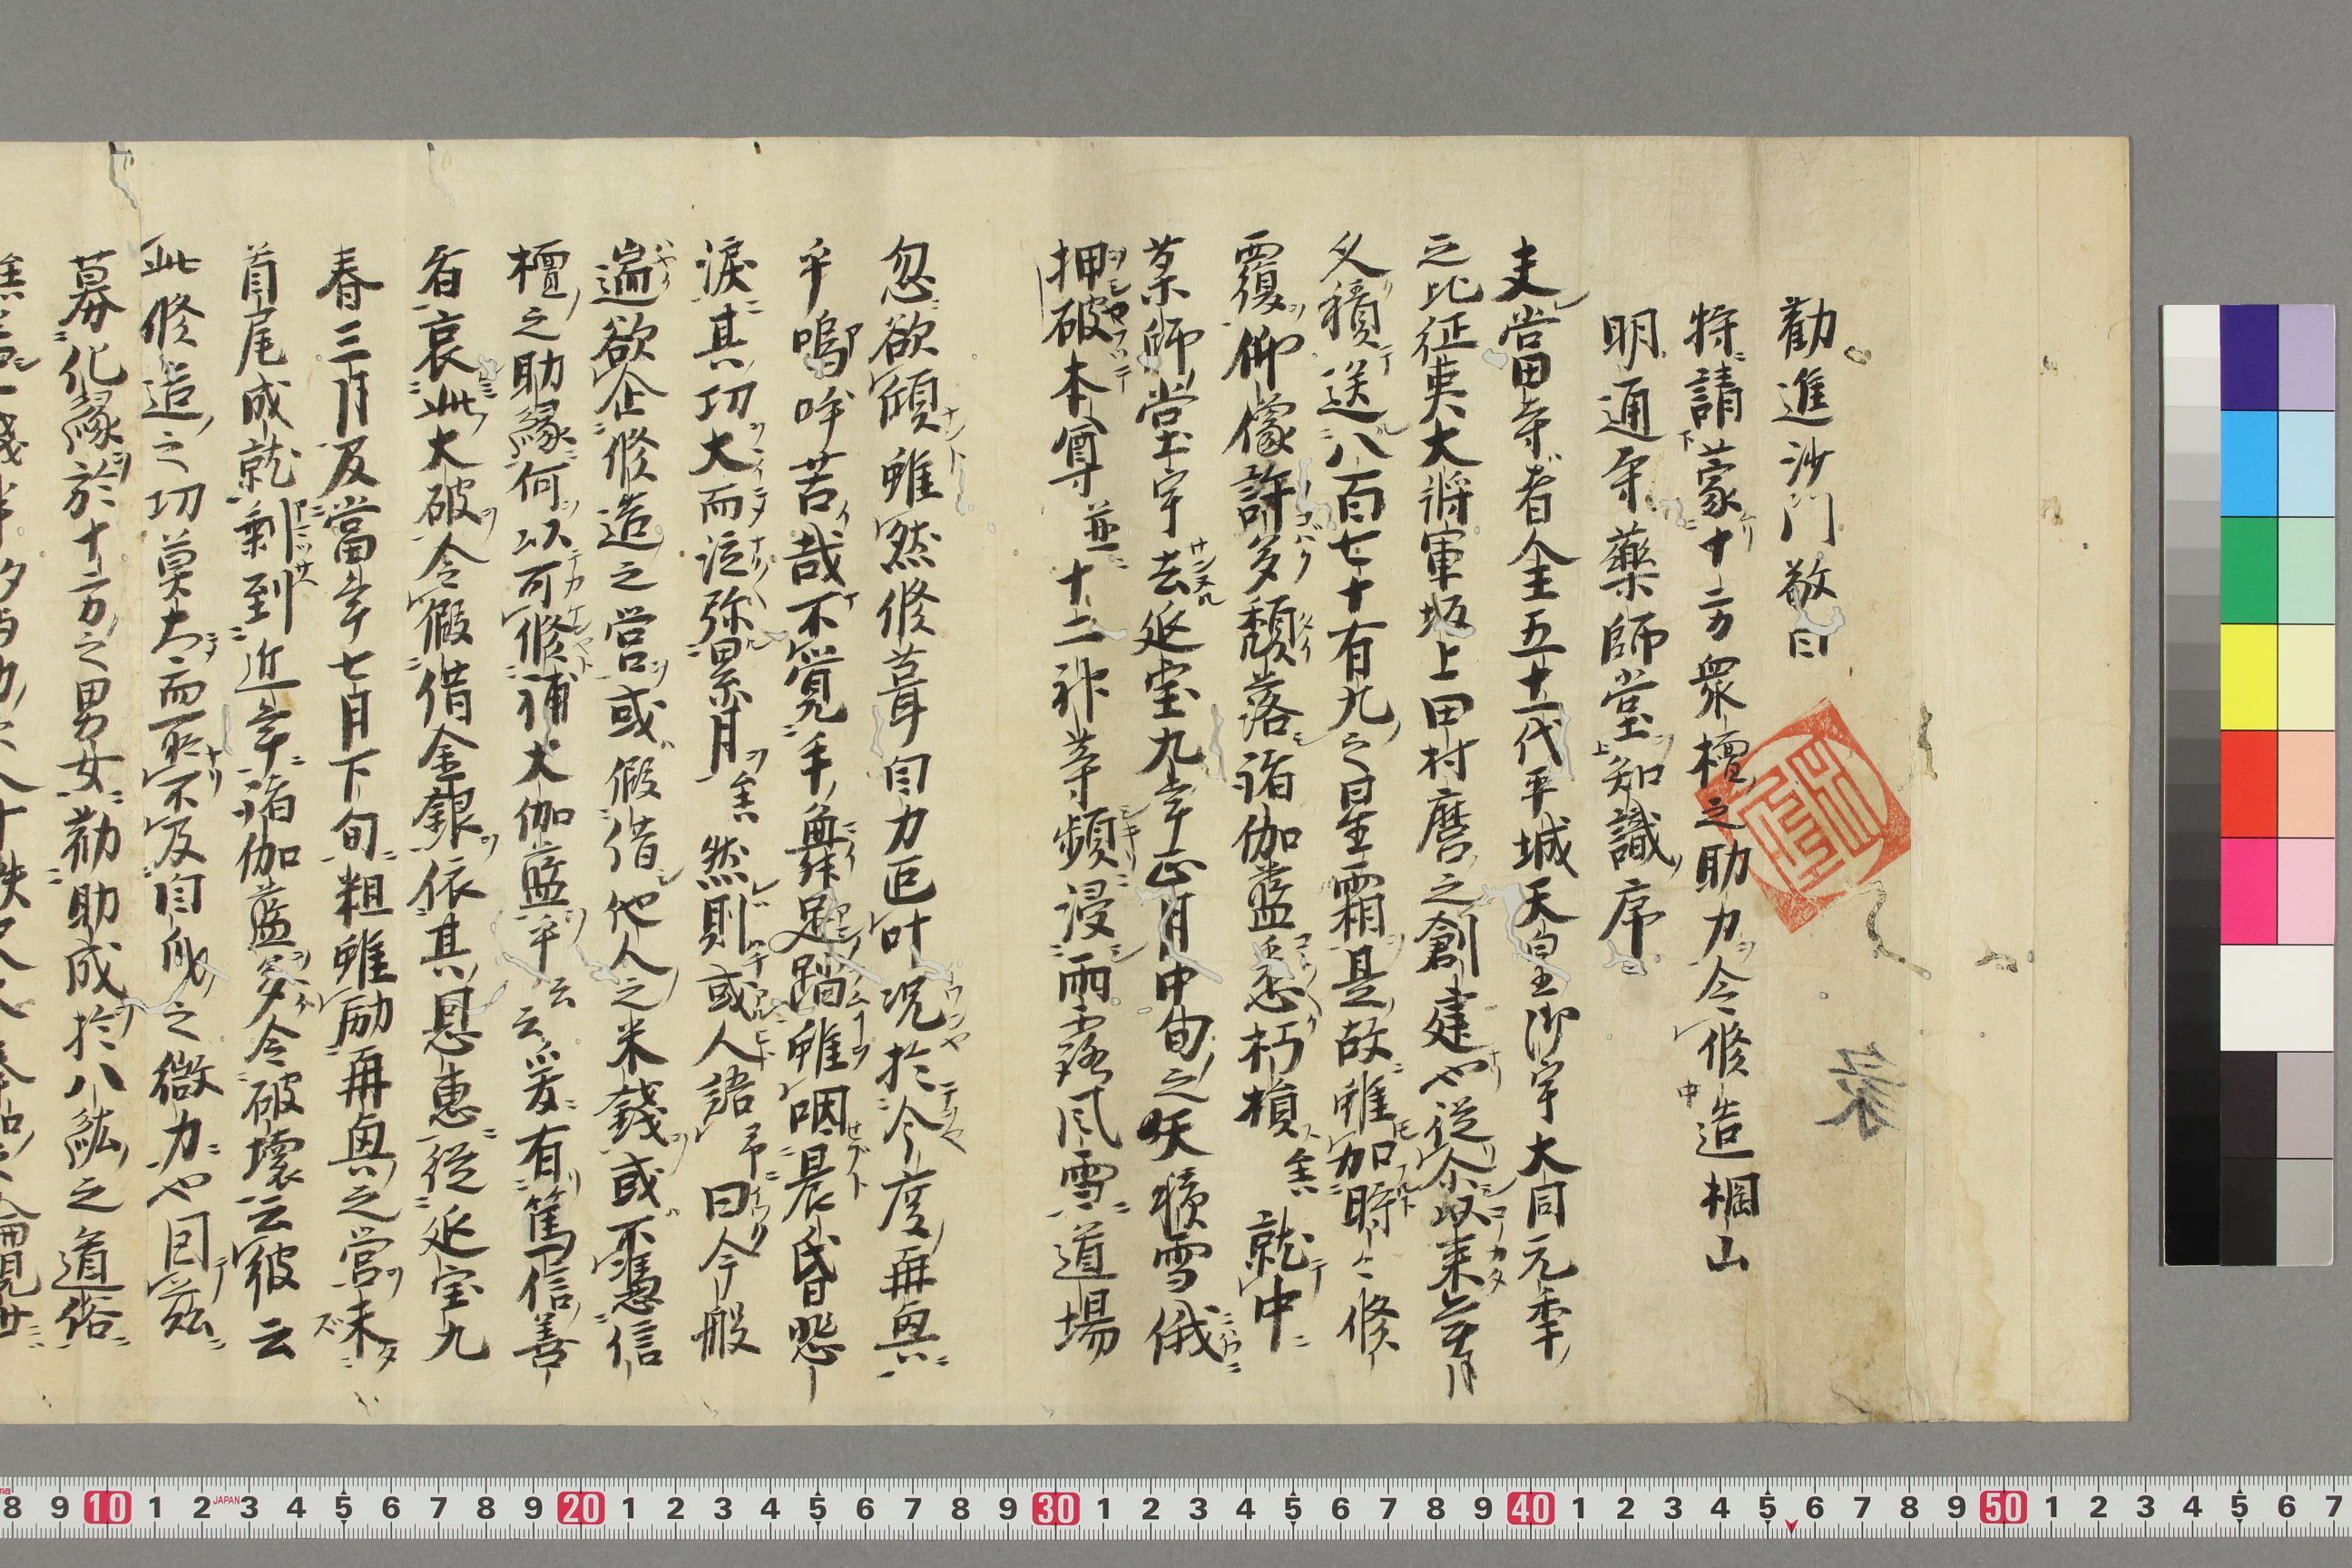 勸進沙門敬曰
特請蒙十方衆檀之助力令修造棡山
明通寺藥師堂知識序
夫當寺者金主五十一代平城天皇御宇大同元季
之比征夷大將軍坂上田村麿之創建也従尒以来年月
久積送八百七十有九之星霜是故雖加時々修
覆仰像許多頽落諸伽藍悉朽損矣就中
薬師堂宇去延宝九年正月中旬之妖積雪俄
押破本尊並十二神等頻浸雨露風雪道場
忽欲頽雖然修葺自力叵叶况於今度再興
乎嗚呼苦哉不覚手舞足蹈雖咽晨昏愁
涙其功大而送弥累月矣然則或人語予曰今般
遄欲企修造之営或假借他人之米錢或不憑信
檀之助縁何以可修補大伽藍乎云云爰有篤信善
者哀此大破令假借金銀依其恩恵従延宝九
春三月及當年七月下旬粗雖励再興之営未
首尾成就剰到近年諸伽藍多令破壊云彼云
此修造之功莫大而所不及自身之微力也因茲
募化縁於十方之男女勸助成於八紘之道俗